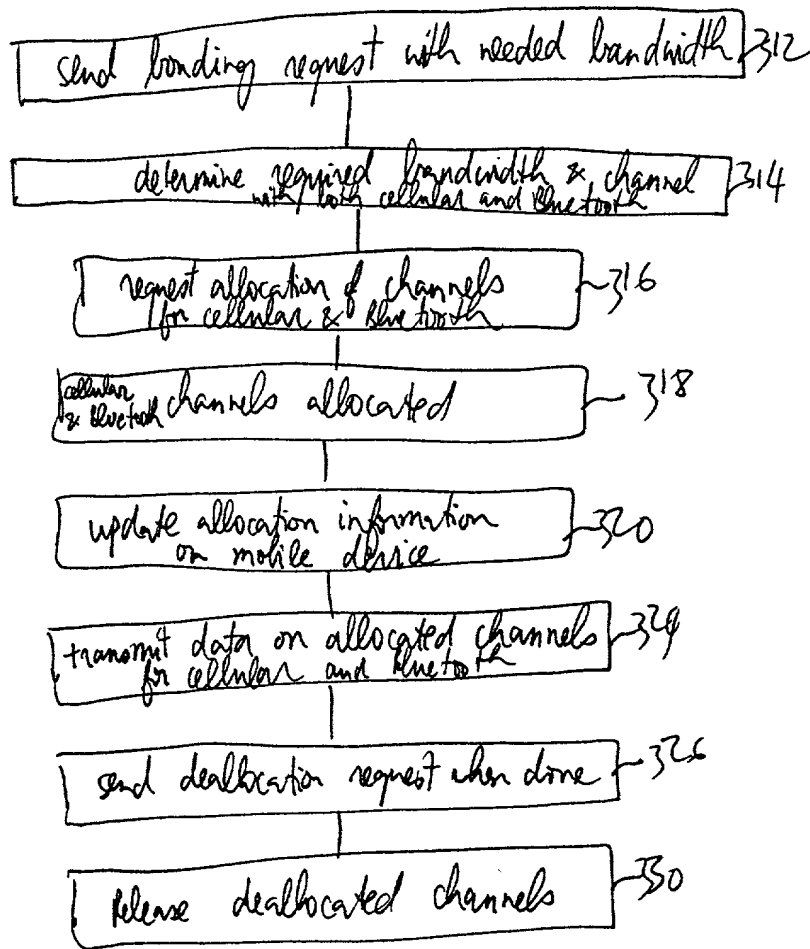 send bonding request with needed bandwidth 312
determine required bandwidth & channel 314
with/ both cellular and Bluetooth
request allocation of channels 316
for cellular & Bluetooth
cellular
& Bluetooth channels allocated 318
update allocation information 320
on mobile device
transmit data on allocated channels 324
for cellular and Bluetooth
send deallocation request when done 326
Release deallocated channels 330